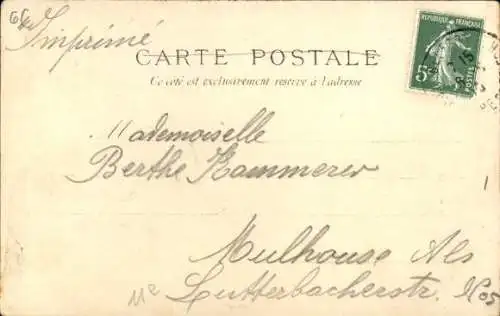 Imprimé
RÉPUBLIQUE FRANÇAISE
5c
POSTES
CARTE POSTALE
Ce côté est exclusivement réservé à l'adresse
Mademoiselle
Berthe Kammerer
Mulhouse Als
Lutterbacherstr. No5